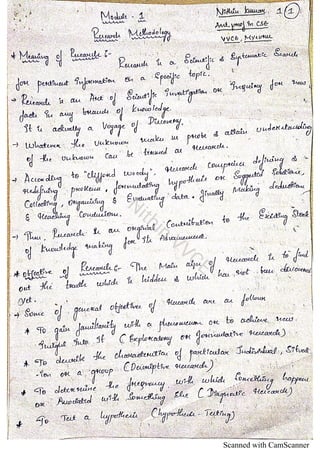 Module - 1
Nithin Kumar
1 1
Asst prof in CSE
Research Methodology
VVCE, Mysuru
* Meaning of Research :-
Research is a Scientific & Systematic Search
for pertinent Information on a Specific topic.
→ Research is an Art of Scientific Investigation or Inquiry for new
facts in any branch of knowledge.
It is actually a Voyage of Discovery.
→ Whatever the unknown makes us probe & attain understanding
of the unknown can be termed as Research.
→ According to "Clifford woody", research comprises defining &
redefining problems, formulating hypothesis or Suggested Solutions,
Collecting, Organizing & Evaluating data, finally Making deduction
& Reaching Conclusion.
→ Thus, Research is an original Contribution to the Existing Stock
of knowledge making for Its Advancement.
* objective of Research :- The Main aim of research is to find
out the truth which is hidden & which has not been discovered
yet.
→ Some of general objectives of research are as follows
* To gain familiarity with a phenomenon or to achieve new
Insight Into It (Exploratory or formulative research)
* To describe the characteristics of particular Individual, Situat
-ion or a group (Descriptive research)
* To determine the frequency with which Something happens
or Associated with Something else (Diagnostic research)
* To Test a hypothesis (hypothesis - Testing)
Scanned with CamScanner